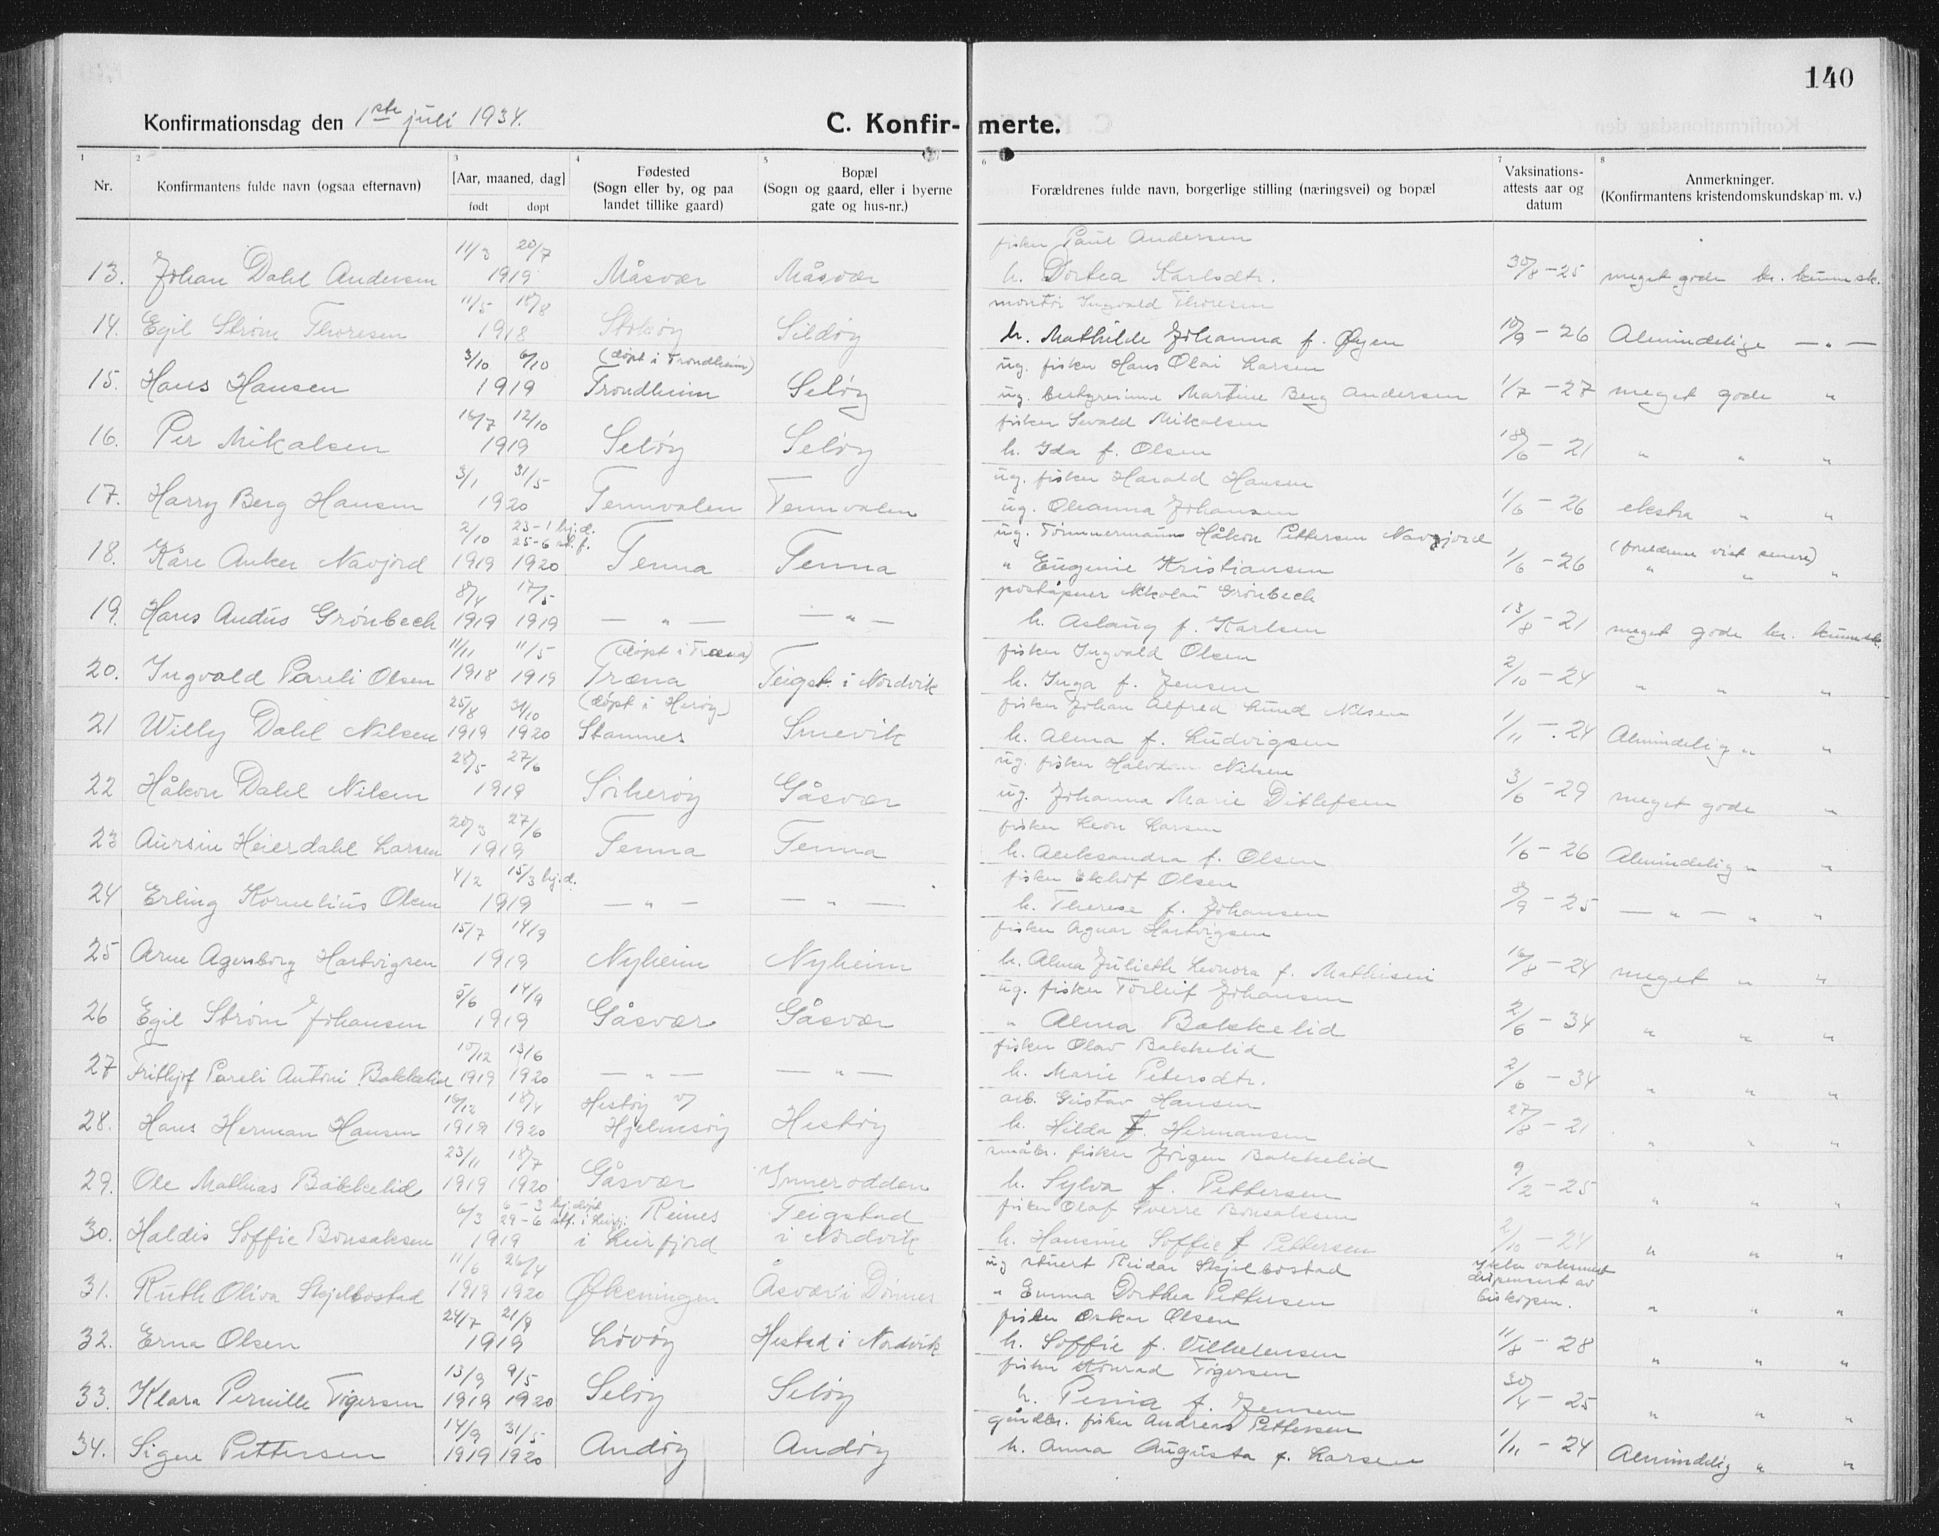 140
Konfirmationsdag den 1ste juli 1934.
C. Konfir- merte.
1 2 3 4 5 6 7 8
Nr.
Konfirmantens fulde navn (ogsaa efternavn)
[Aar, maaned, dag]
født døpt
Fødested
(Sogn eller by, og paa
landet tillike gaard)
Bopæl
(Sogn og gaard, eller i byerne
gate og hus-nr.)
Forældrenes fulde navn, borgerlige stilling (næringsvei) og bopæl
Vaksinations-
attests aar og
datum
Anmerkninger.
(Konfirmantens kristendomskundskap m. v.)
11/3 20/7 fisker Paul Andersen
13. Johan Dahl Andersen 1919 Måsvær Måsvær h. Dortea Karlsdtr. 30/8 - 25 meget gode kr. kunnsk.
11/5 18/8 montør Ingvald Thoresen
14. Egil Strøm Thoresen 1918 Sildøy h. Mathilde Johanna f. Øyen 10/9 - 26 Almindelige — " —
3/10 6/10 (døpt i Trondheim) ug. fisker Hans Olai Larsen
15. Hans Hansen 1919 Trondheim Seløy ug. bestyrerinne Martine Berg Andersen 1/7 - 27 meget gode "
16/7 12/10 fisker Sevald Mikalsen
16. Per Mikalsen 1919 Seløy Seløy h. Ida f. Olsen 18/6 - 21 " " "
3/1 31/5 ug. fisker Harald Hansen
17. Harry Berg Hansen 1920 Tennvalen Tennvalen ug. Oleanna Johansen 1/6 - 26 ekstra " "
2/10 23-1 hj.d. 25-6 st.f. ug. Tømmermann Håkon Pettersen Navjord
18. Kåre Anker Navjord 1919 1920 Tenna Tenna " Eugenie Kristiansen 1/6 - 26 (foreldrene viet senere) " " "
8/4 17/5 poståpner Nikolai Grønbech
19. Hans Andús Grønbech 1919 1919 — " — — " — h. Aslaug f. Karlsen 13/8 - 21 meget gode kr. kunnsk.
11/11 11/5 (døpt i Træna) fisker Ingvald Olsen
20. Ingvald Pareli Olsen 1918 1919 Træna Teigst. i Nordvik h. Inga f. Jensen 2/10 - 24 " " "
25/8 31/10 (døpt i Herøy) fisker Johan Alfred Lund Nilsen
21 Willy Dahl Nilsen 1919 1920 Stamnes Smevik h. Alma f. Ludvigsen 1/11 - 24 Almindelig " "
28/5 27/6 ug. fisker Halvdan Nilsen
22 Håkon Dahl Nilsen 1919 Sørherøy Gåsvær ug. Johanna Marie Ditlefsen 3/6 - 29 meget gode "
20/3 27/6 fisker Leon Larsen
23 Heierdahl Larsen 1919 Tenna Tenna h. Aleksandra f. Olsen 1/6 - 26 Almindelig " "
4/2 15/3 hj.d. fisker Olsen
24 Erling Kornelius Olsen 1919 — " — — " — h. Therese f. Johansen 8/9 - 25 — " — " "
15/7 14/9 fisker Agnar Hartvigsen
25 Arne Agenborg Hartvigsen 1919 Nyheim Nyheim h. Alma Julieth Leonora f. Mathisen 16/8 - 24 meget " "
5/6 14/9 ug. fisker Torleif Johansen
26 Egil Strøm Johansen 1919 Gåsvær Gåsvær " Alma Bakkelid 2/6 - 34 " " "
10/12 13/6 fisker Olav Bakkelid
27 Frithjof Pareli Antoni Bakkelid 1919 1920 — " — — " — h. Marie Petersdtr. 2/6 - 34 " " "
16/12 18/4 Hestøy arb. Gustav Hansen
28. Hans Herman Hansen 1919 1920 Hjelmsøy Hestøy h. Hilda f. Hermansen 27/8 - 21 " " "
23/11 18/7 småbr. fisker Jørgen Bakkelid
29. Ole Mathias Bakkelid 1919 1920 Gåsvær Innerodden h. Sylva f. Pettersen 9/2 - 25 " " "
6/3 6-3 hj.døpt 29-6 Reines Teigstad fisker Olaf Sverre Bonsaksen
30. Haldis Soffie Bonsaksen 1919 i Leirfjord i Nordvik h. Hansine Soffie f. Pettersen 2/10 - 24 " " "
11/6 26/4 ug stuert Reidar Skjelbostad
31. Ruth Oliva Skjelbostad 1919 1920 Økeningen Åsvær i Dønnes " Emma Dorthea Pettersen Ikke vaksinert dispensert av biskopen. " " "
24/7 21/9 fisker Oskar Olsen
32. Erna Olsen 1919 Løvøy Hestad i Nordvik h. Soffie f. Vilhelmsen 11/8 - 28 " " "
13/9 9/5 fisker Konrad Tøgersen
33. Klara Pernille Tøgersen 1919 1920 Seløy Seløy h. Penia f. Jensen 30/4 - 25 " " "
14/9 31/5 gårdbr. fisker Andreas Pettersen
34. Signe Pettersen 1919 1920 Andøy Andøy h. Anna Augusta f. Larsen 1/11 - 24 Almindelig " "